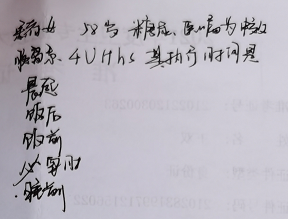 患者女 58岁 糖尿病 医嘱为中效
胰岛素 4U Hhs 其执行时间是
晨起
饭后
饭前
必要时
临睡前